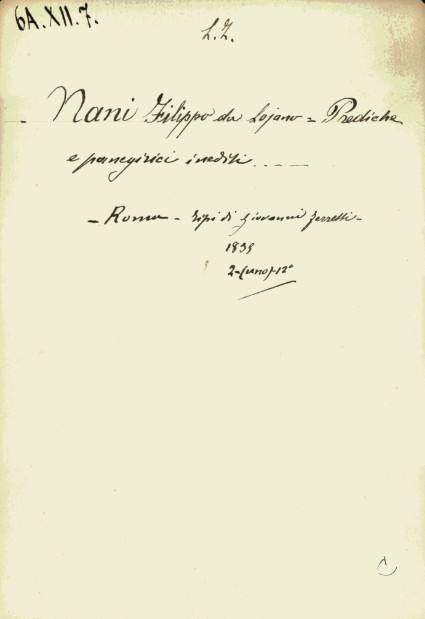 6A.XII.7.
L.Z.
Nani Filippo da Lojano = Prediche
e panegirici inediti
- Roma - Tipi di Giovanni Ferretti -
1835
2-(uno)-12°